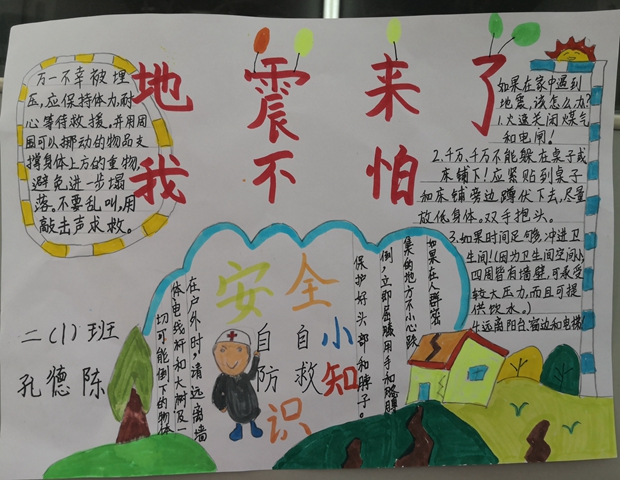 地震来了
我不怕
万一不幸被埋
压，应保持体力，耐
心等待救援。并用周
围可以挪动的物品支
撑身体上方的重物，
避免进一步塌
落。不要乱叫，用
敲击声求救。
如果在家中遇到
地震，该怎么办？
1.火速关闭煤气
和电闸！
2.千万、千万不能躲在桌子或
床铺下！应紧贴到桌子
和床铺旁边蹲伏下去，尽量
放低身体。双手抱头。
3.如果时间足够，冲进卫
生间！（因为卫生间空间小，
四周皆有墙壁，可承受
较大压力，而且可提
供饮水。）
4.远离阳台、窗边和电梯
安全小知识
自防
自救
在户外时，请远离墙
体电线杆和大树及一
切可能倒下的物体
如果在人群密
集的地方不小心跌
倒，立即屈膝用手和胳膊
保护好头部和脖子。
二（1）班
孔德陈